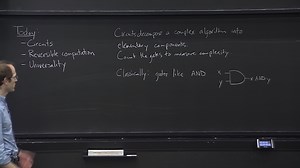 Today
- Circuits
- Reversible computation
- Universality
Circuits decompose a complex algorithm into
elementary components.
Count the gates to measure complexity.
Classically: gates like AND
x
y
x AND y